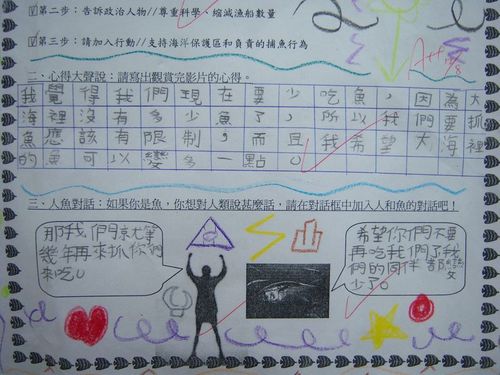 第二步：告訴政治人物//尊重科學、縮減漁船數量
第三步：請加入行動//支持海洋保護區和負責的捕魚行為
A++
二、心得大聲說：請寫出觀賞完影片的心得。
我覺得我們現在要少吃魚，因為大
海裡沒有多少魚了，所以我們要抓
魚應該有限制，而且我希望大海裡
的魚可以變多一點。
三、人魚對話：如果你是魚，你想對人類說甚麼話，請在對話框中加入人和魚的對話吧！
那我們就等
幾年再來抓你們
來吃。
希望你們不要
再吃我們了我
們的同伴都變
少了。